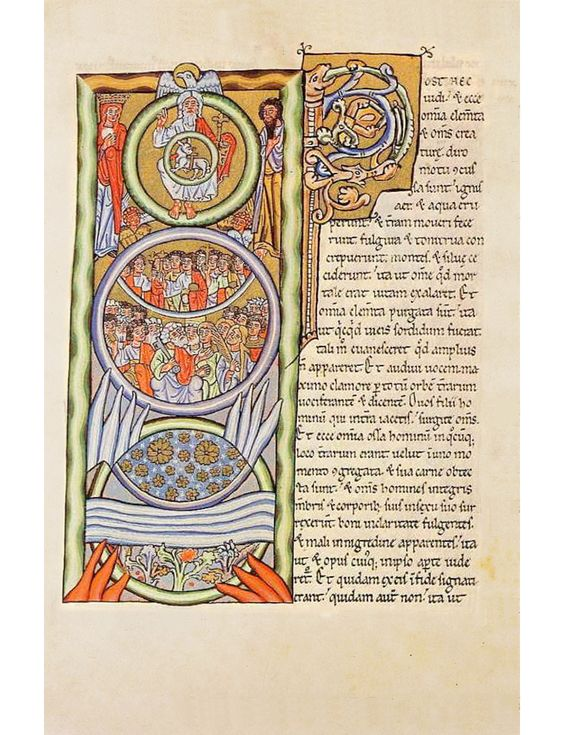 POST HEC
uidi. & ecce
omnia elem̄ta
& om̄s crea
ture diro
motu ꝯcus
sa sunt. ignis
aer & aqua eru
perunt. & t̄ram moueri fece
runt. fulgura & tonitrua con
crepuerunt. montes & silue ce
ciderunt. ita ut om̄e qd̄ mor
tale erat uitam exalaret. Et
omnia elem̄ta purgata sūt. ita
ut qcqd ī eis sordidum fuerat
talit̄ euanesceret qd̄ amplius
n̄ appareret. Et audiui uocem ma
ximo clamore p totū orbē t̄rarum
uociferantē & dicentē. O uos filii ho
minū qui in t̄ra iacetis. surgite om̄s.
Et ecce omia ossa hominū in qcūq;
loco t̄rarum erant uelut ī uno mo
mento ꝯgregata. & sua carne obtec
ta sunt. & om̄s homines integris
mbris & corporib; suis in sexu suo sur
rexerunt. boni in claritate fulgentes.
& mali in nigredine apparentes. ita
ut & opus cuiq; in ipso apte uide
ret̄. Et quidam ex eis in fide signati
erant. quidam aut̄ non. ita ut